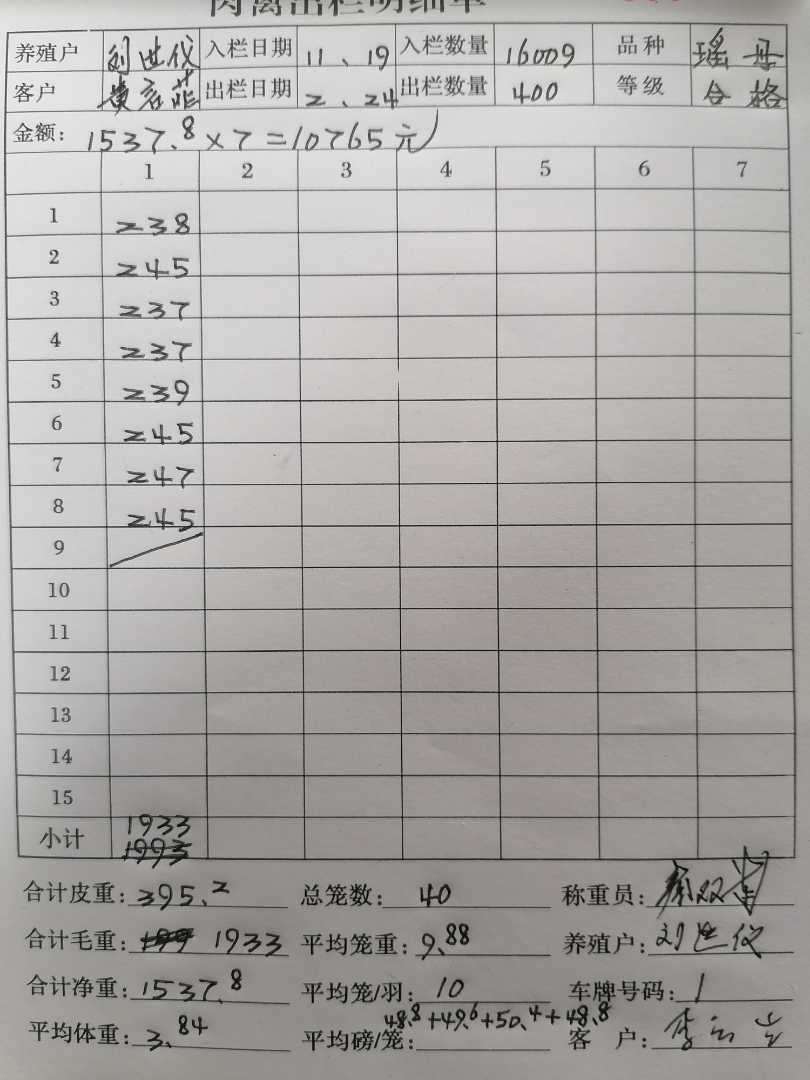 肉禽出栏明细单
养殖户 刘世仪 入栏日期 11、19 入栏数量 16009 品种 瑶丹
客户 出栏日期 2、24 出栏数量 400 等级 合格
金额: 1537.8×7=10765元
1 2 3 4 5 6 7
1 238
2 245
3 237
4 237
5 239
6 245
7 247
8 245
9
10
11
12
13
14
15
小计 1933
合计皮重: 395.2 总笼数: 40 称重员:
合计毛重: 1933 平均笼重: 9.88 养殖户: 刘世仪
合计净重: 1537.8 平均笼/羽: 10 车牌号码: 1
平均体重: 3.84 平均磅/笼: 48.8+49.6+50.4+48.8 客户: